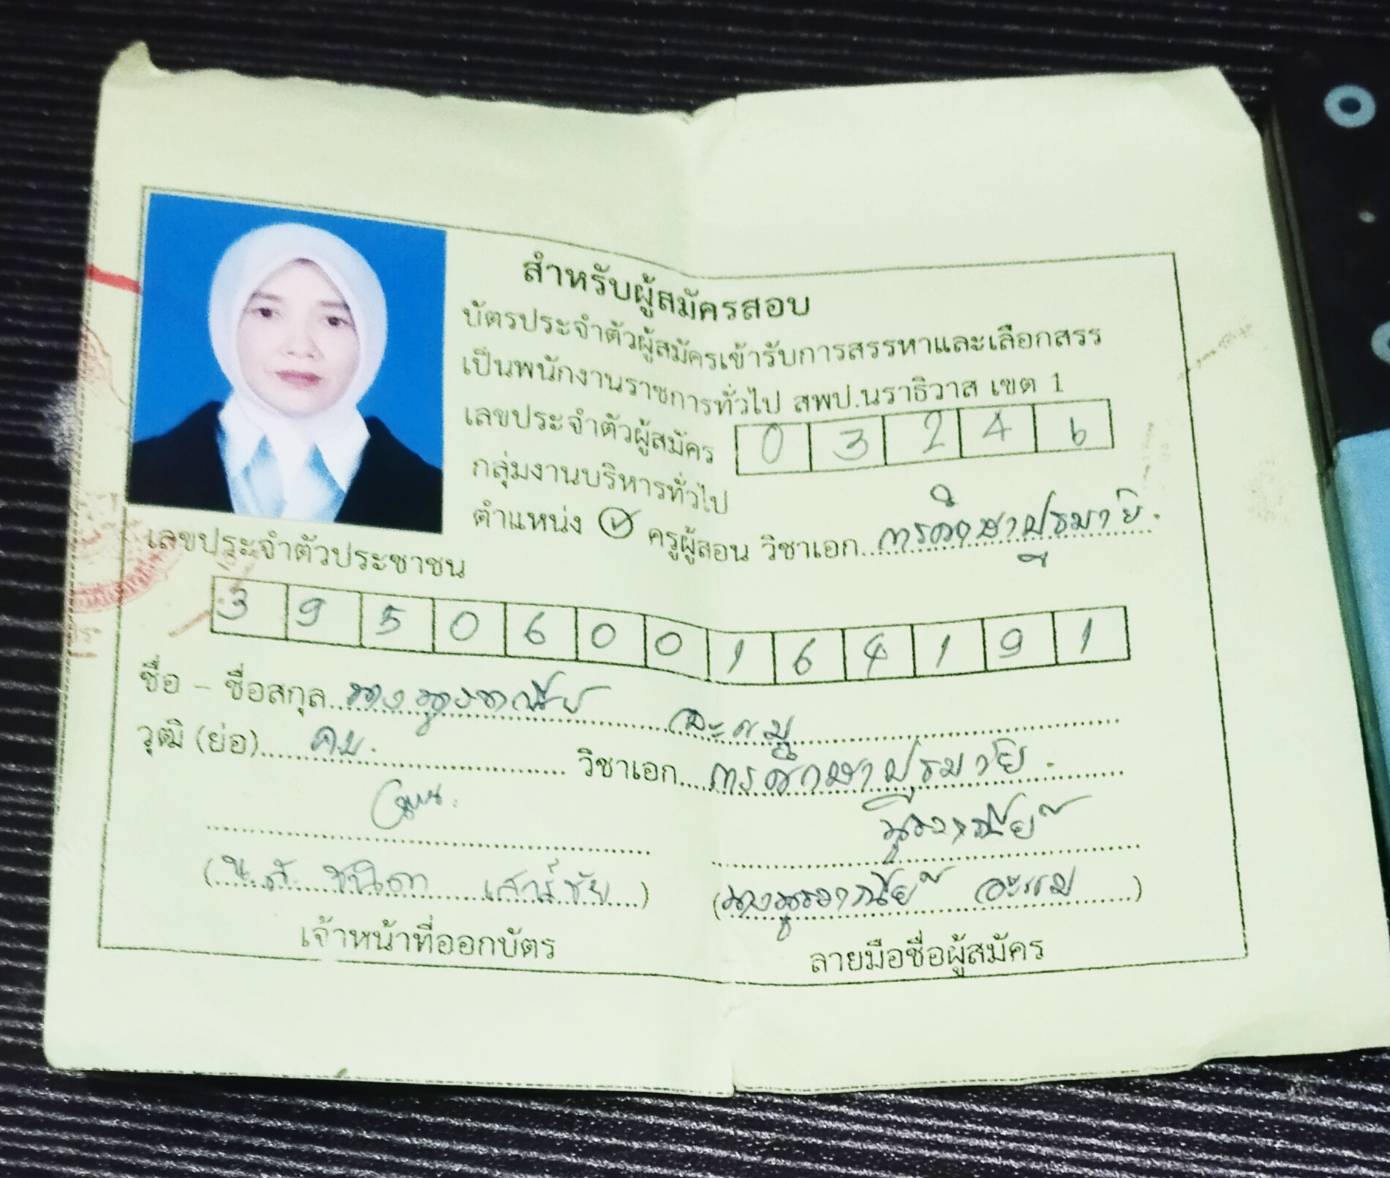 สำหรับผู้สมัครสอบ
บัตรประจำตัวผู้สมัครเข้ารับการสรรหาและเลือกสรร
เป็นพนักงานราชการทั่วไป สพป.นราธิวาส เขต 1
เลขประจำตัวผู้สมัคร 0 3 2 4 6
กลุ่มงานบริหารทั่วไป
ตำแหน่ง ครูผู้สอน วิชาเอก การศึกษาปฐมวัย
เลขประจำตัวประชาชน
3 9 5 0 6 0 0 1 6 4 1 9 1
ชื่อ - ชื่อสกุล นาง
วุฒิ (ย่อ) คบ. วิชาเอก การศึกษาปฐมวัย
(น.ส.
(นาง
เจ้าหน้าที่ออกบัตร ลายมือชื่อผู้สมัคร